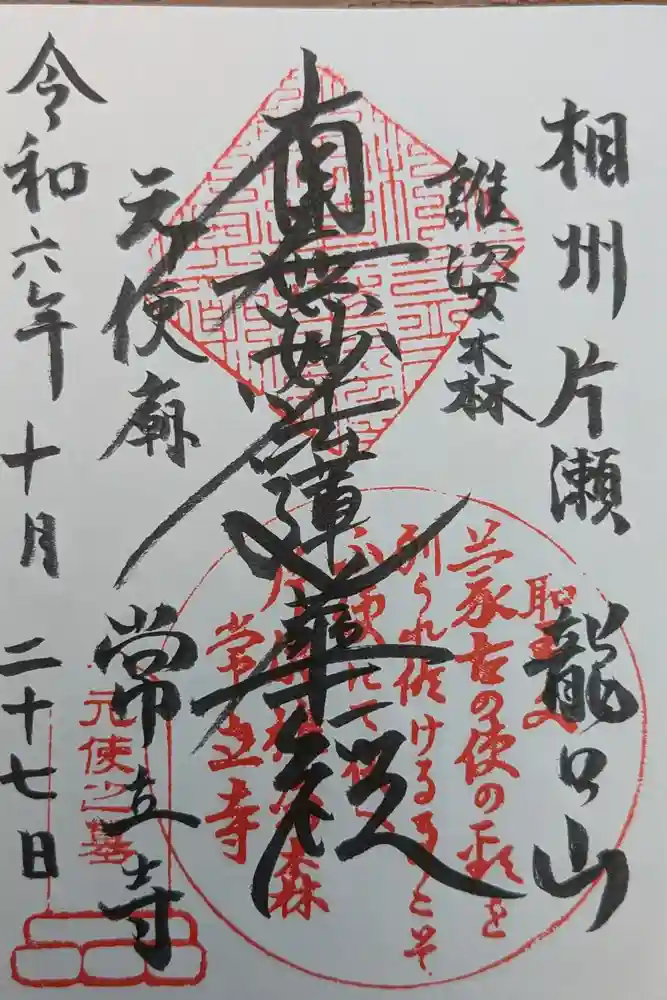 相州片瀬 龍口山
誰姿森
南無妙法蓮華経
元使廟
常立寺
令和六年十月二十七日
聖文
蒙古の使の頸を
刎られ候ける事こそ
片瀬
森
常立寺
元使之墓